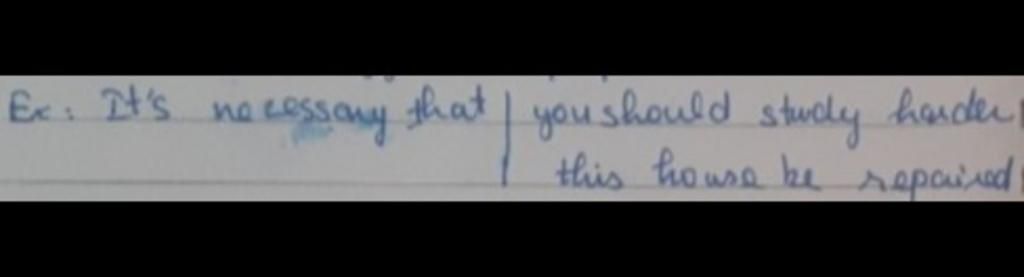 Ex: It's necessary that | you should study harder
this house be repaired